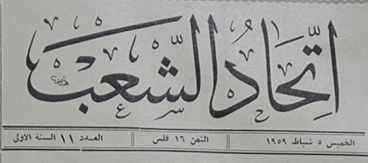 اتّحَادُ الشّعبْ
الخميس ٥ شباط ١٩٥٩ الثمن ١٦ فلس العدد ١١ السنة الاولى